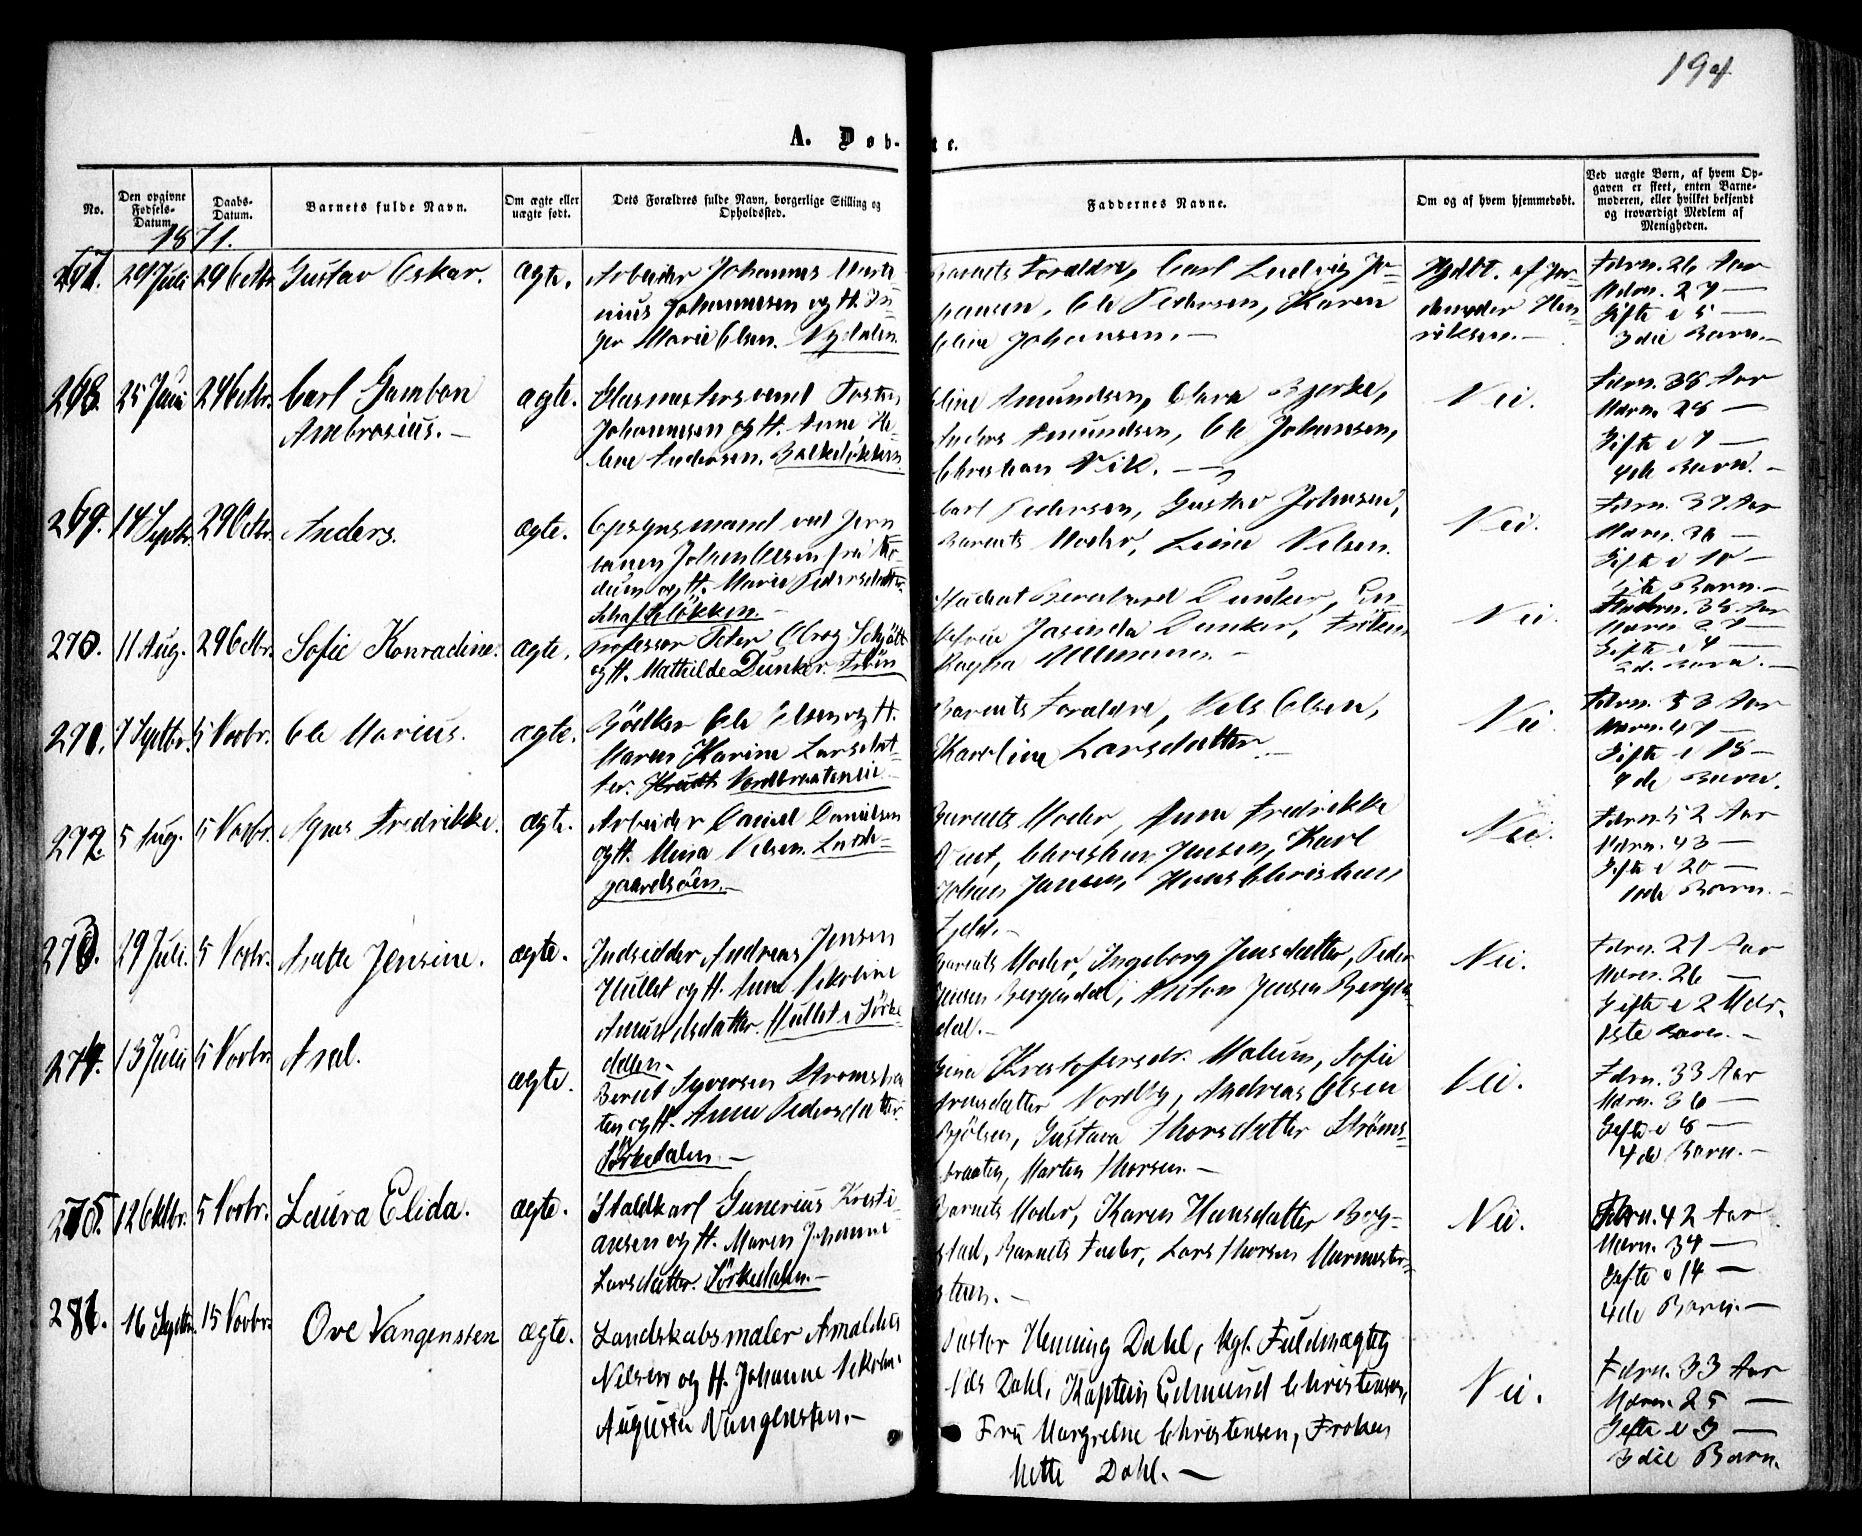 194
A. Døb-
te.
No.
Den opgivne Fødsels-Datum.
Daabs-Datum.
Barnets fulde Navn.
Om ægte eller uægte født.
Dets Forældres fulde Navn, borgerlige Stilling og Opholdssted.
Faddernes Navne.
Om og af hvem hjemmedøbt.
Ved uægte Børn, af hvem Op-
gaven er skeet, enten Barne-
moderen, eller hvilket bekjendt
og troværdigt Medlem af
Menigheden.
1871.
29 Juli 29 Octbr. Gustav Oskar. ægte.
Arbeider Johannes
Johannesen og H. In-
ger Marie Olsen. Nydalen.
Barnets Forældre, Carl Ludvig Jo-
hansen, Ole Pedersen, Karen
Oline Johansen.-
Hjdbt. af Jor-
demoder Hen-
riksen.-
Fdrn. 26 Aar
Mdrn. 27 —
Gifte i 5 —
3die Barn.-
268. 25 Juni 24 Octbr. Carl
Ambrosius.- ægte.
Johannesen og H. Anne He-
lene Andersen.
Oline Amundsen, Clara Bjerke,
Anders Amundsen, Ole Johansen,
Christian Vik. —
Nei.
Fdrn. 38 Aar
Mdrn. 28 —
Gifte i 7 —
4de Barn.-
269. 14 Septbr. 29 Octbr. Anders. ægte.
Opsynsmand ved Jern-
banen Johan Olsen fra
og H. Marie Pedersdatter
løkken.-
Carl Pedersen, Gustav Johnsen,
Barnets Moder, Liene Nelsen.
Nei.
Fdrn. 37 Aar
Gifte i 10 —
Barn.-
270. 11 Aug. 29 Octbr. Sofie Konradine. ægte.
Professor Peter Olrog Schjøtt
og H. Mathilde Dunker. Frøen
Student Bernhard Dunker, En-
kefrue Jasinda Dunker, Frøken
Ragna Ullmann.-
Nei.
Fdrn. 38 Aar
Mdrn. 27 —
Gifte i 4 —
2d. Barn.-
271. 7 Septbr. 5 Novbr. Ole Marius. ægte.
Bødker Ole Olsen og H.
Maren Karine Larsdat-
ter. Nordbraateneie
Barnets Forældre, Nels Olsen,
Karoline Larsdatter.-
Nei
Fdrn. 53 Aar
Mdrn. 47 —
Gifte i 18 —
de Barn.
272. 5 Aug. 5 Novbr. Agnes Fredrikke. ægte.
Arbeider Daniel Danielsen
og H. Mina Nelsen.
gaardsøen.-
Barnets Moder, Anna Fredrikke
Christian Jensen, Karl
Johan Jansen, Hans Christian
Nei.
Fdrn. 52 Aar
Mdrn. 43 —
Gifte i 20 —
10de Barn.-
273. 29 Juli. 5 Novbr. Agathe Jensine. ægte.
Indsidder Andreas Jensen
Hullet og H. Anne Nekoline
Amundsdatter. Hullet i Sørke-
dalen.-
Barnets Moder, Ingeborg Jensdatter, Peder
Jensen Berglidal, Anton Jensen Bergli-
dal.-
Nei.
Fdrn. 27 Aar
Mdrn. 26 —
Gifte i 2 Mdr.
1ste Barn.-
274. 13 Juli 5 Novbr. Axel. ægte.
Berent Syversen Strømsbra-
ten og H. Anne Pedersdatter.
Sørkedalen.-
Gina Kristofersdr. Molum, Sofie
Arnesdatter Nordby, Andreas Olsen
Bjølsen, Gustava Thorsdatter Strøms-
braaten, Marten Thorsen.-
Nei.
Fdrn. 33 Aar
Mdrn. 36 —
Gifte i 8 —
4de Barn.-
275. 12 Oktbr. 5 Novbr. Laura Elida. ægte.
Staldkarl Gunerius Kresti-
ansen og H. Maren Johanne
Larsdatter. Sørkedalen.-
Barnets Moder, Karen Hansdatter Bog-
stad, Barnets Fader, Lars Thorsen Murmester-
stuen.-
Nei.
Fdrn. 42 Aar
Mdrn. 34 —
Gifte i 14 —
4de Barn.-
16 Septbr. 15 Novbr. Ove Vangensten ægte.
Landskabsmaler Amaldus
Nelsen og H. Johanne Nekoline
Augusta Vangensten.-
Pastor Henning Dahl, kgl. Fuldmægtig
Nils Dahl, Kaptein Edmund Christensen,
Fru Margrethe Christensen, Frøken
Mette Dahl.-
Nei.
Fdrn. 33 Aar
Mdrn. 25 —
Gifte i 3 —
3die Barn.